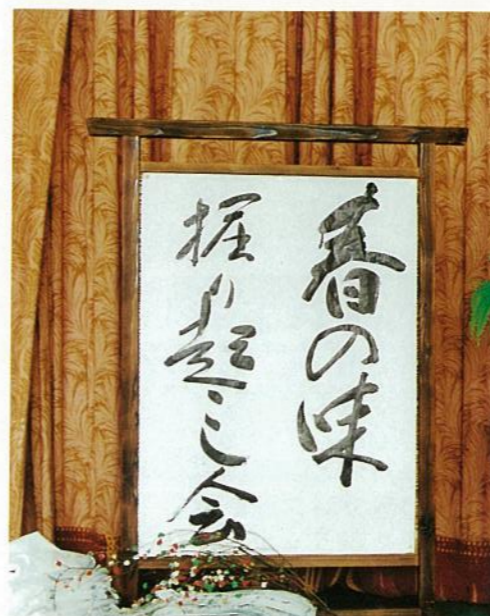 春の味
掘り起こし会